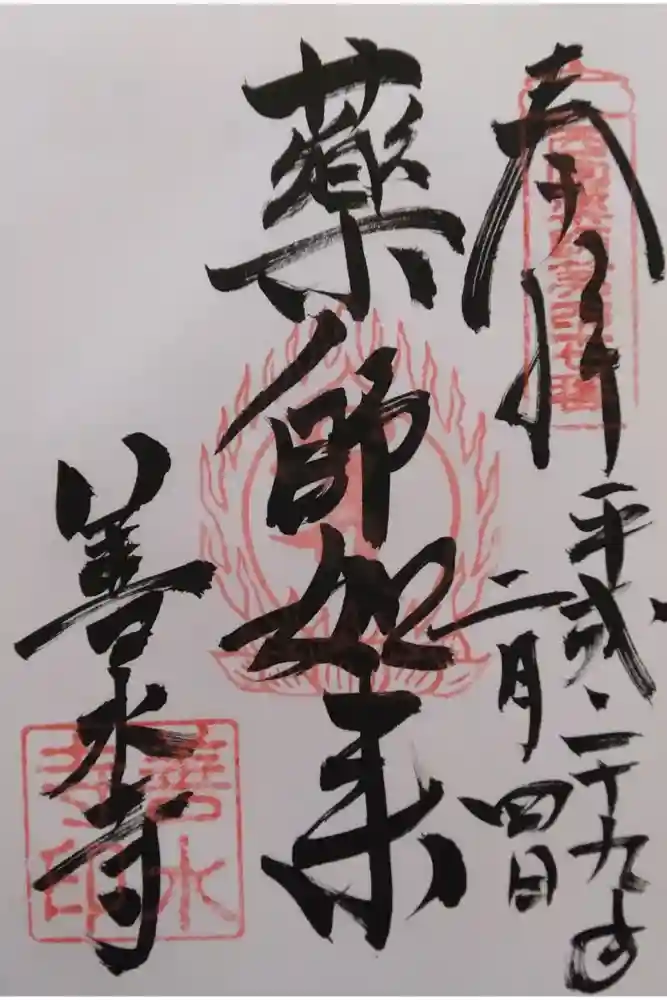 奉拝
平成二十九年
二月四日
薬師如来
善水寺
善水
寺印